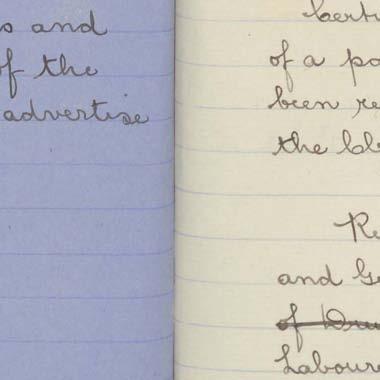 s and
of the
advertise
of a po
been re
the
Re
and Ge
Labour